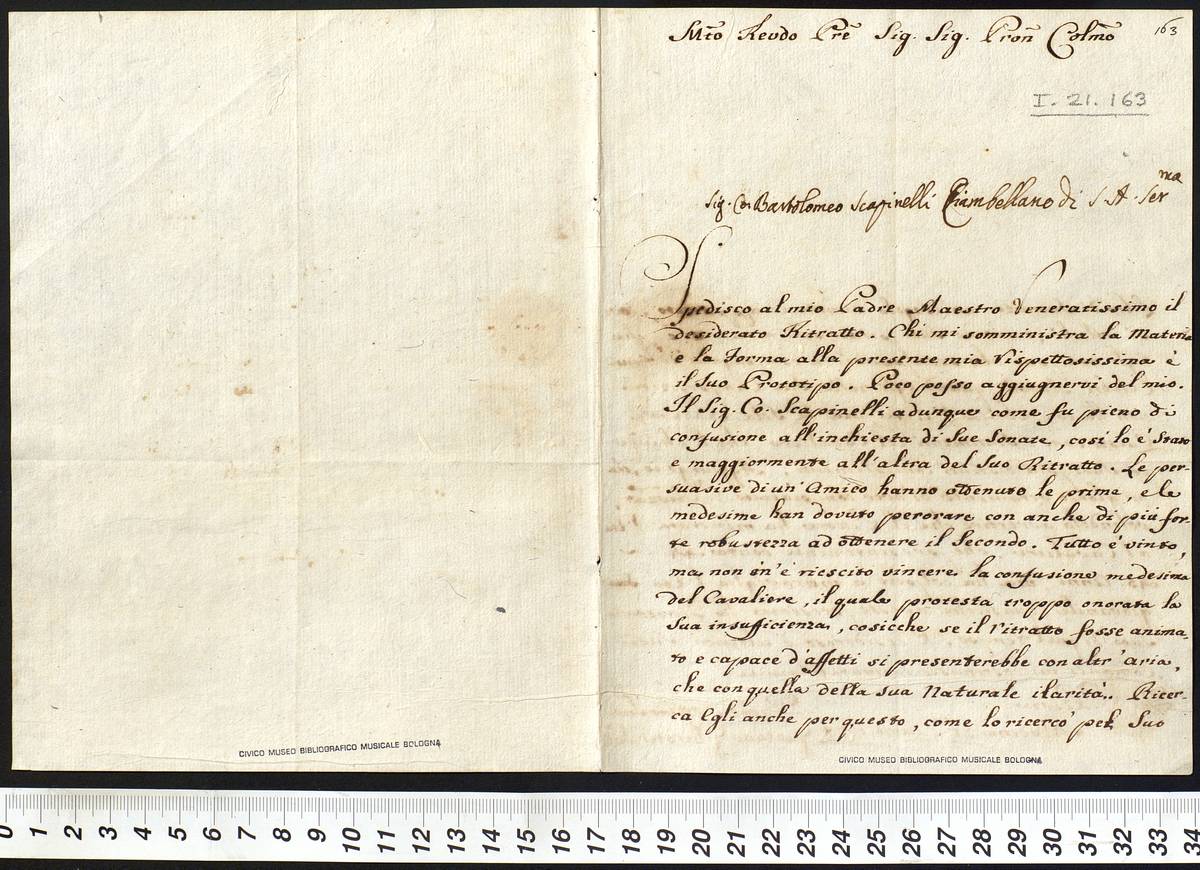 Mto Revdo Pre Sig. Sig. Pron Colmo
163
I. 21. 163
Sig. Co. Bartolomeo Scapinelli Ciambellano di S. A. Serma
Spedisco al mio Padre Maestro Veneratissimo il
desiderato Ritratto. Chi mi somministra la Materia
e la Forma alla presente mia rispettosissima è
il Suo Prototipo. Poco posso aggiugnervi del mio.
Il Sig. Co. Scapinelli adunque come fu pieno di
confusione all'inchiesta di Sue Sonate, così lo è stato
e maggiormente all'altra del Suo Ritratto. Le per-
suasive di un' Amico hanno ottenuto le prime, e le
medesime han dovuto perorare con anche di più for-
te robustezza ad ottenere il Secondo. Tutto è vinto,
ma non m'è riescito vincere la confusione medesima
del Cavaliere, il quale protesta troppo onorata la
Sua insufficienza, cosicche se il ritratto fosse anima-
to e capace d'affetti si presenterebbe con altr'aria,
che con quella della sua Naturale ilarità. Ricer-
ca Egli anche per questo, come lo ricercò pel Suo
CIVICO MUSEO BIBLIOGRAFICO MUSICALE BOLOGNA
CIVICO MUSEO BIBLIOGRAFICO MUSICALE BOLOGNA
0 1 2 3 4 5 6 7 8 9 10 11 12 13 14 15 16 17 18 19 20 21 22 23 24 25 26 27 28 29 30 31 32 33 34